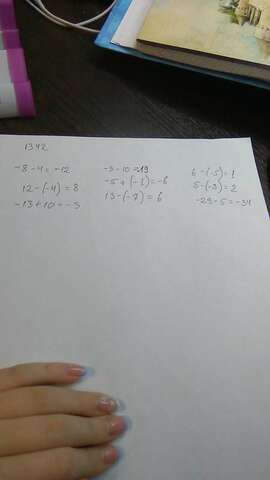 1342
-8-4=-12 -9-10=19 6-(-5)=1
12-(-4)=8 -5+(-1)=-6 5-(-3)=2
-13+10=-3 13-(-7)=6 -29-5=-34